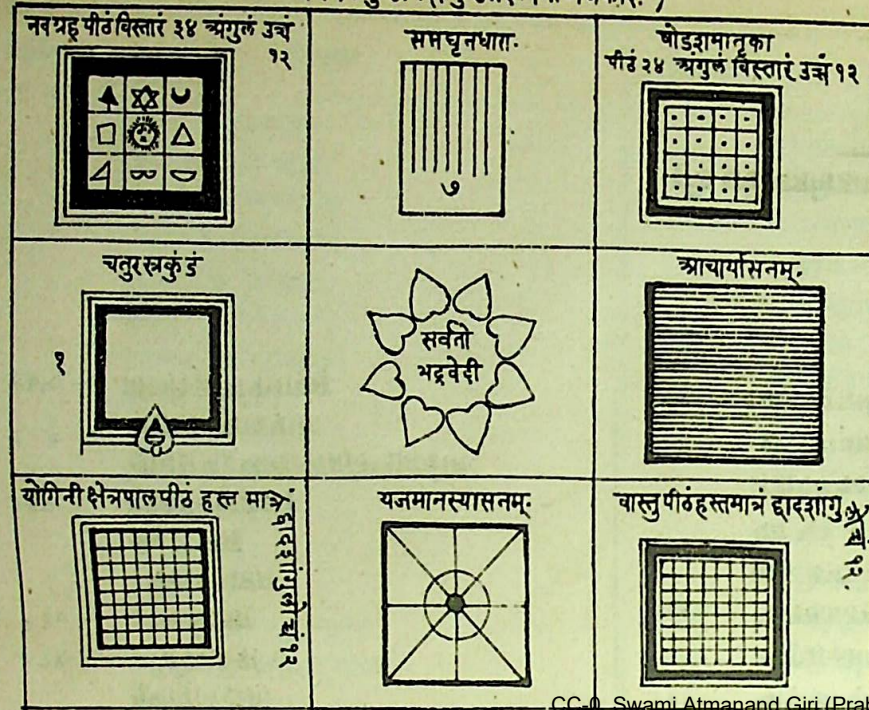 नवग्रह पीठं विस्तारं ३४ अंगुलं उच्चं
१२
सप्तघृतधारा.
७
षोडशमातृका
पीठं २४ अंगुलं विस्तारं उच्चं १२
चतुरस्त्रकुंडं
१
सर्वतो
भद्रवेदी
आचार्यासनम्.
योगिनी क्षेत्रपालपीठं हस्त मात्रं
द्वादशांगुलोच्चं १२
यजमानस्यासनम्.
वास्तुपीठं हस्तमात्रं द्वादशांगु
१२.
CC-0. Swami Atmanand Giri (Prab